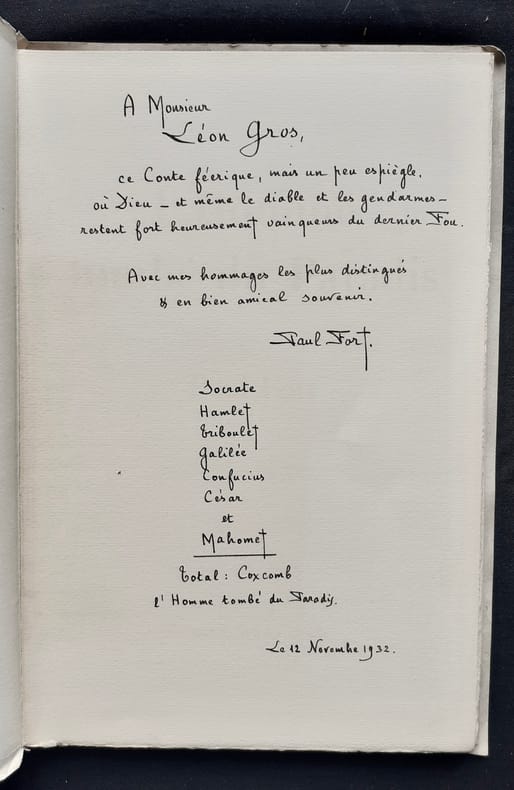 A Monsieur
Léon Gros,
ce Conte féerique, mais un peu espiègle.
où Dieu - et même le diable et les gendarmes -
restent fort heureusement vainqueurs du dernier Fou.
Avec mes hommages les plus distingués
& en bien amical souvenir.
Paul Fort.
Socrate
Hamlet
Triboulet
Galilée
Confucius
César
et
Mahomet
Total : Coxcomb
l'Homme tombé du Paradis.
Le 12 Novembre 1932.